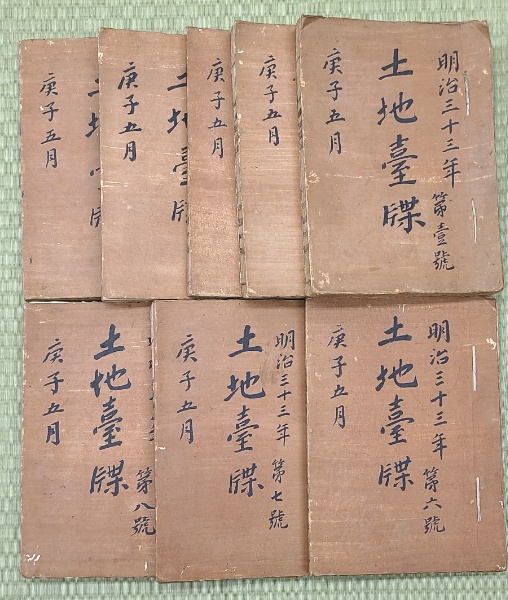 明治三十三年 第壹號
土地臺牒
庚子五月
庚子五月
土地臺牒
庚子五月
庚子五月
明治三十三年 第六號
土地臺牒
庚子五月
明治三十三年 第七號
土地臺牒
庚子五月
第八號
土地臺牒
庚子五月